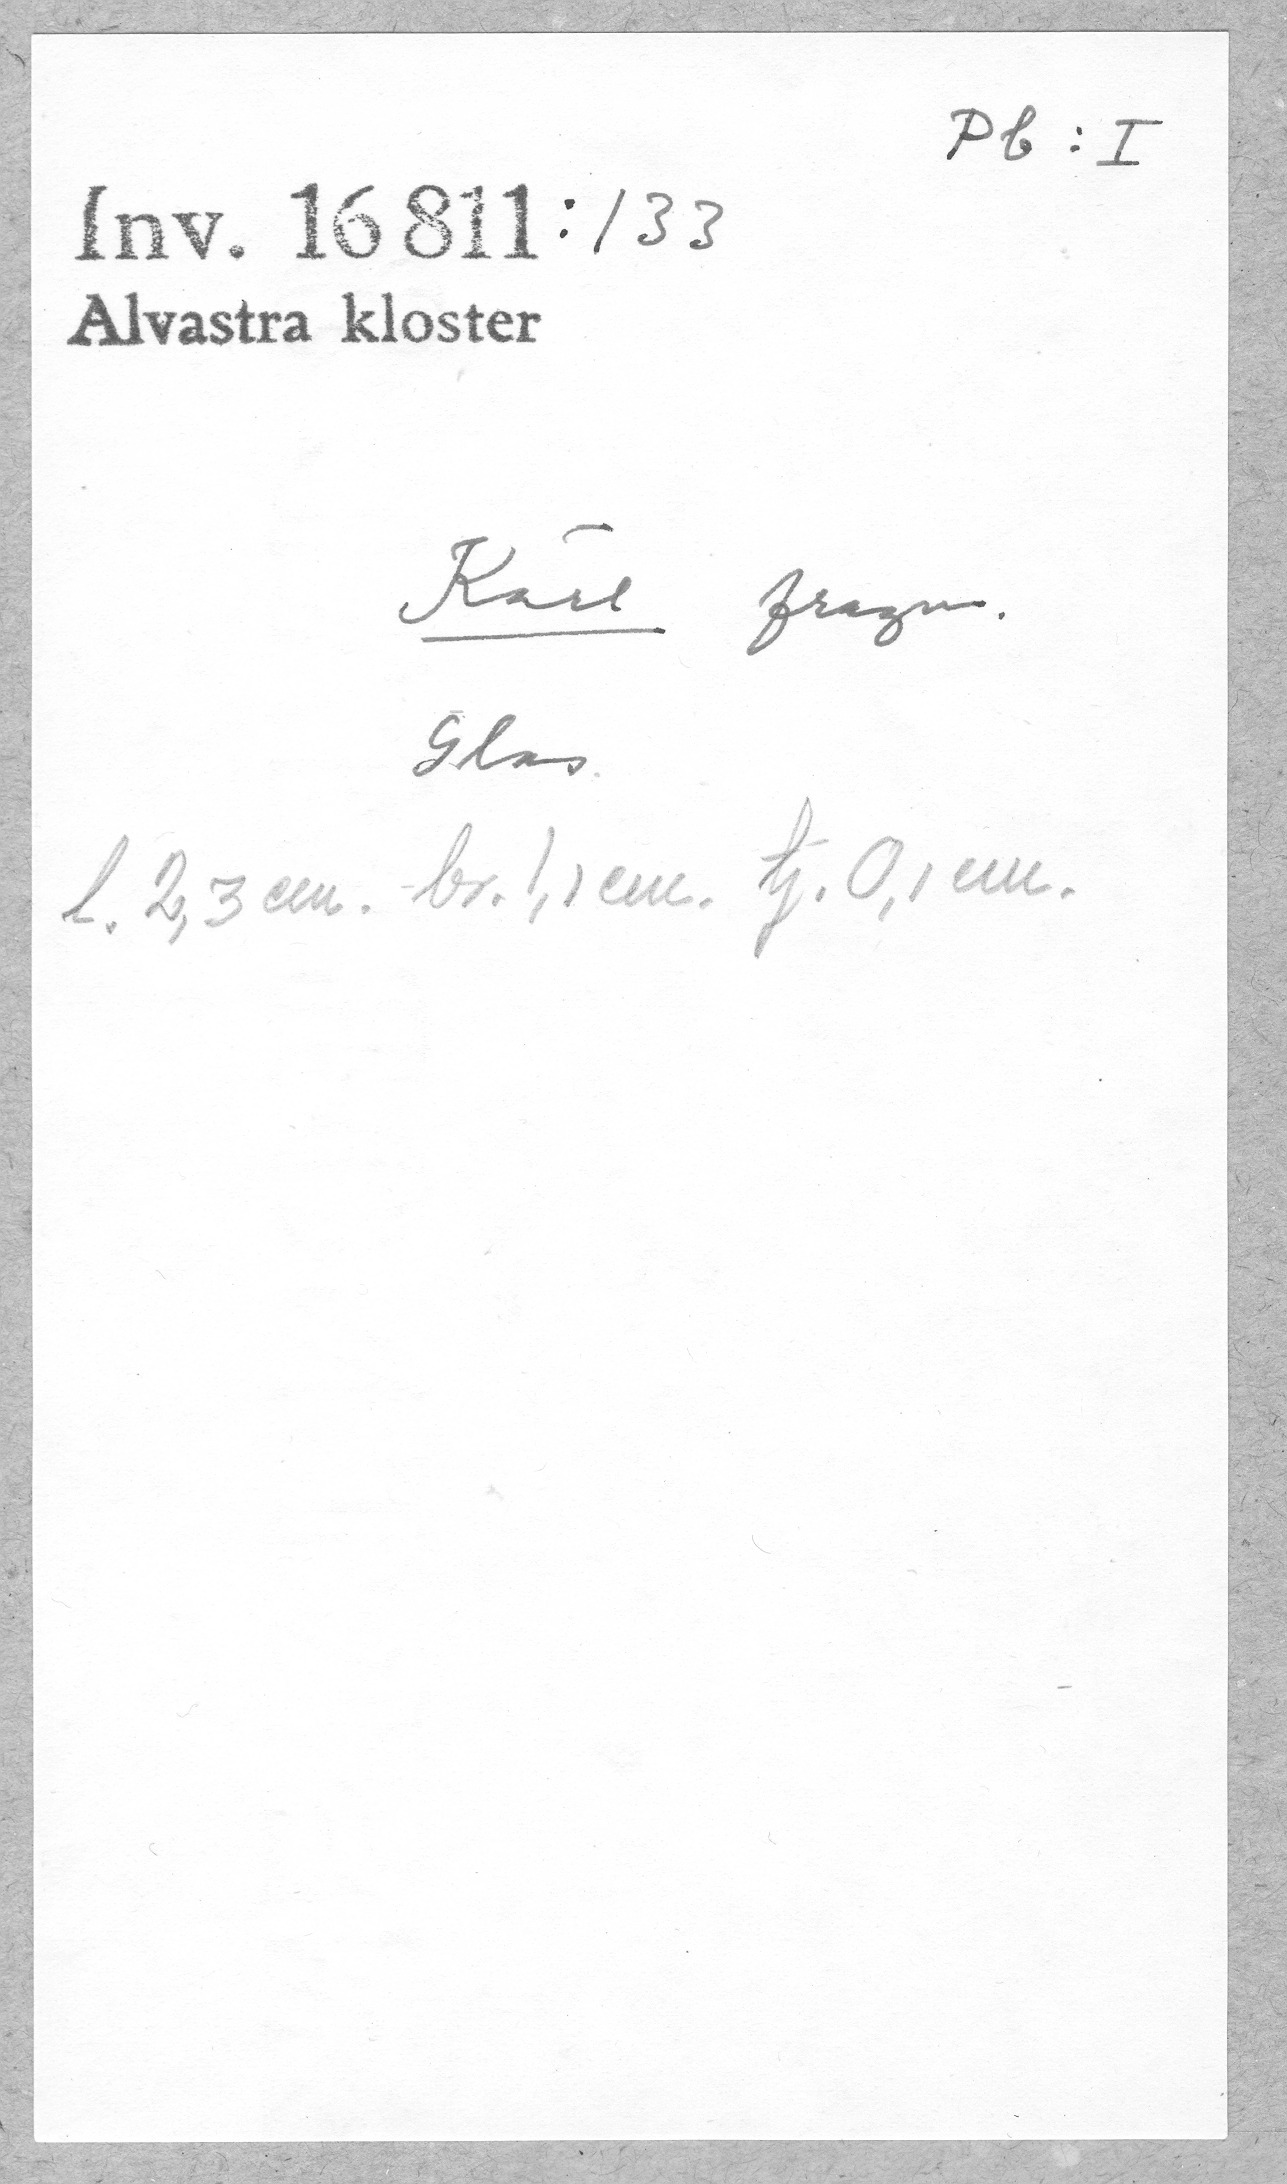 Pb : I
Inv. 16 811:133
Alvastra kloster
Kärl fragm.
Glas.
l. 2,3 cm. br. 1,1 cm. tj. 0,1 cm.